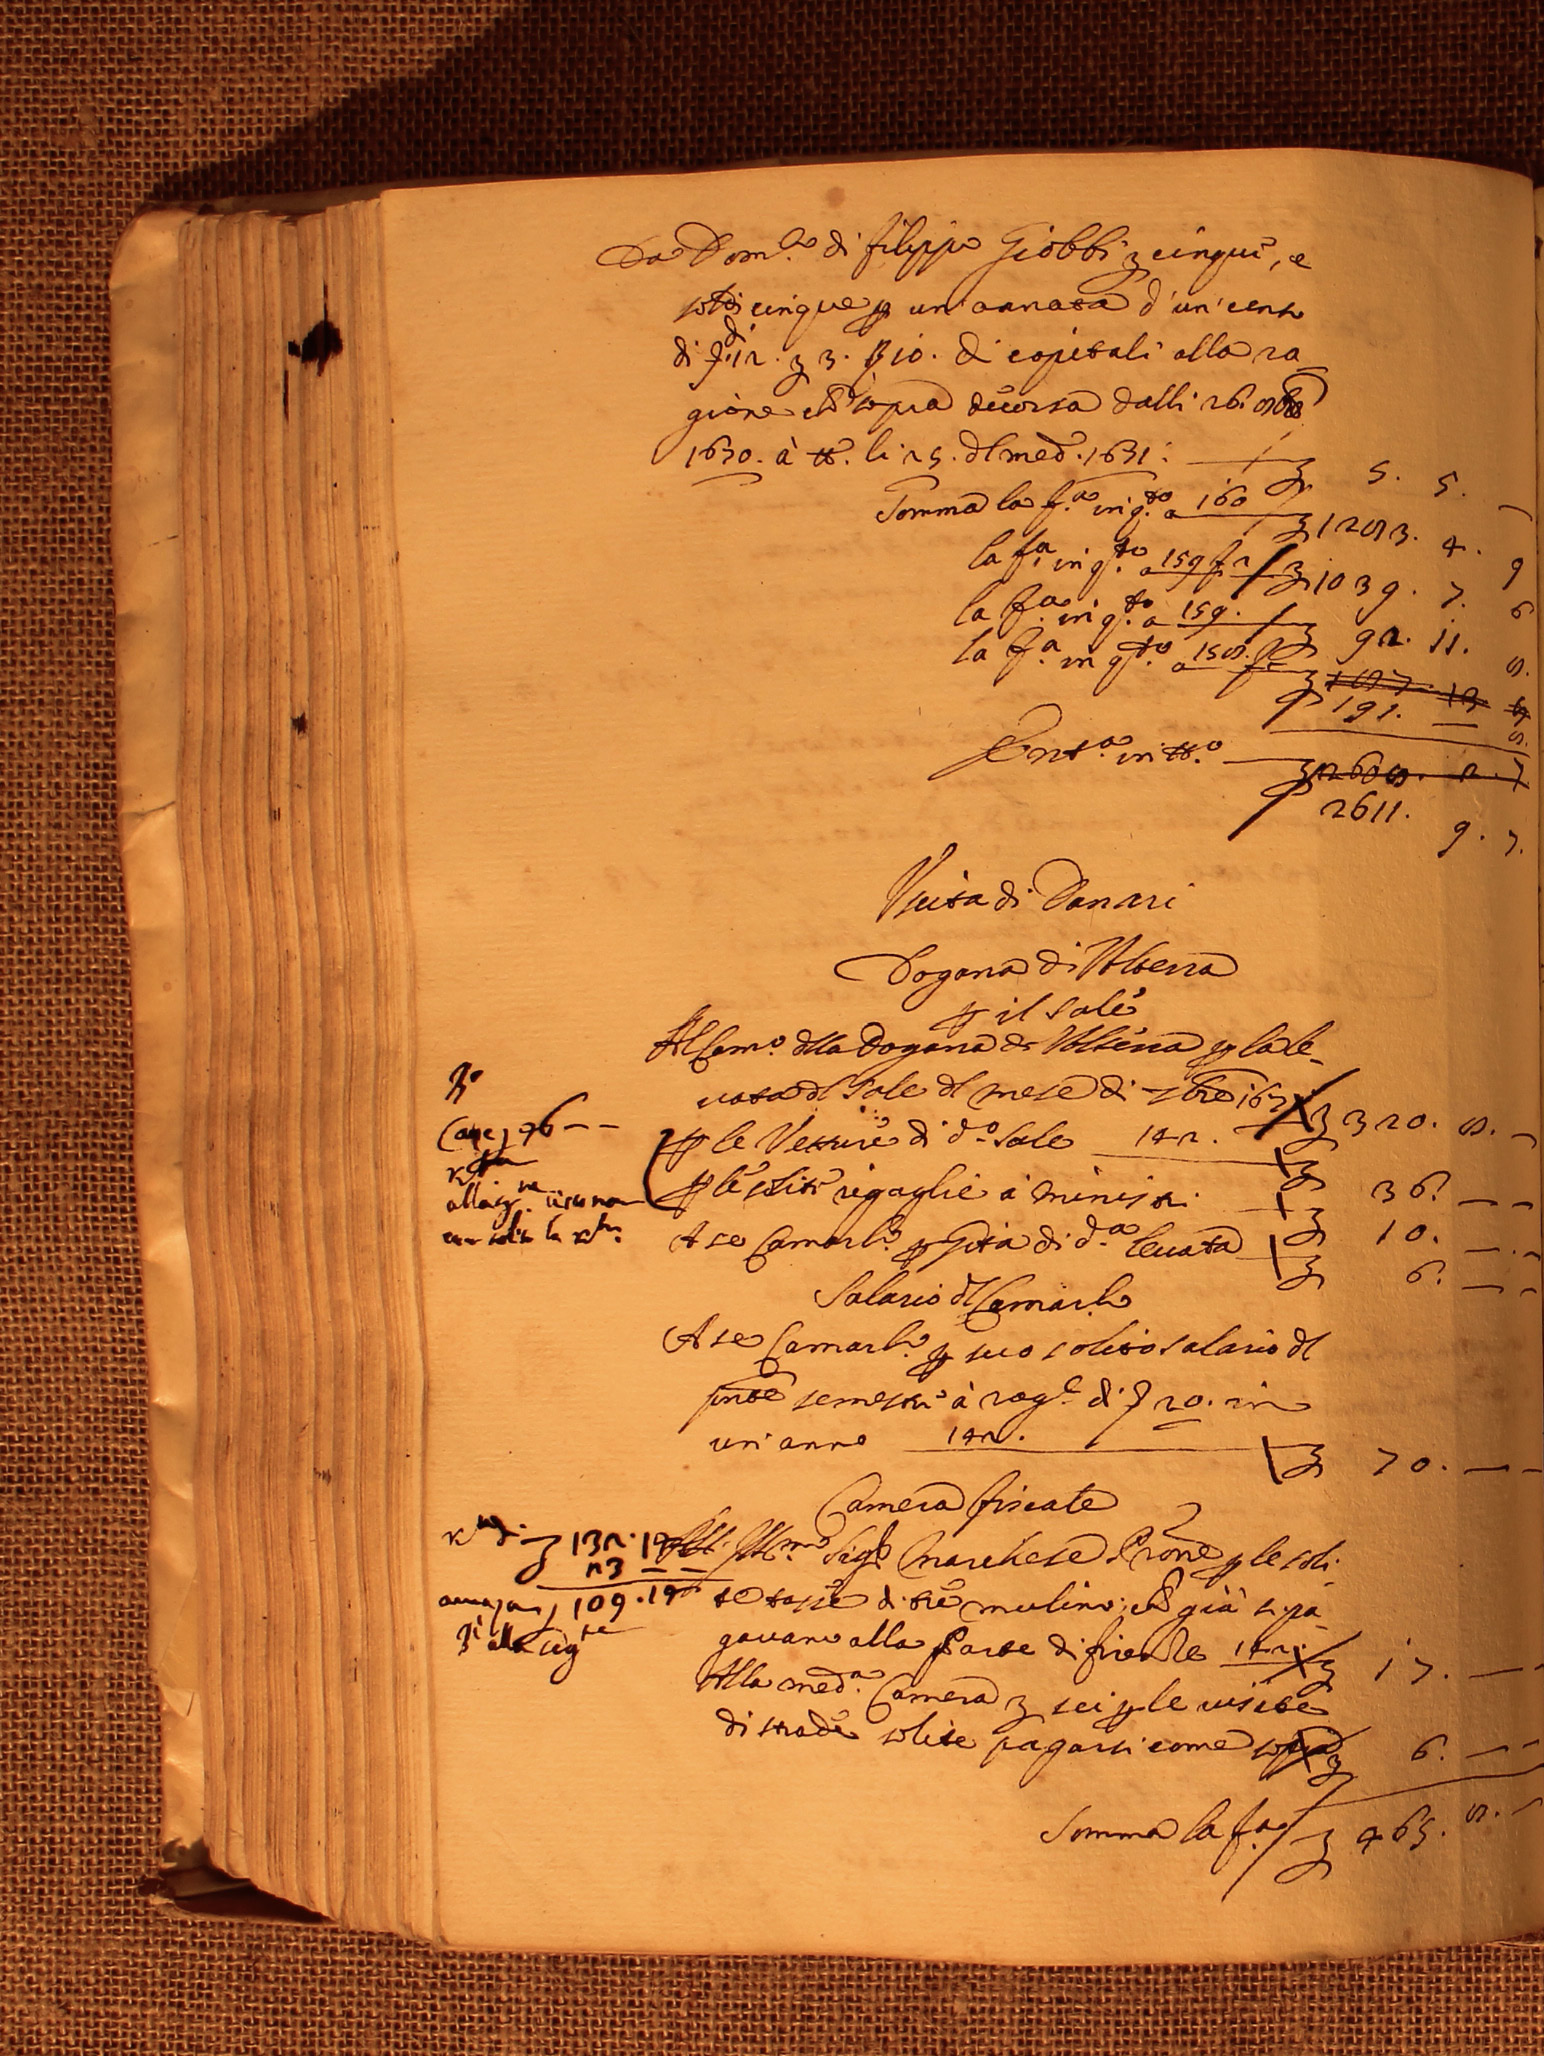 Da Dom.co di filippo Giobbi z cinque, e
soldi cinque p un'annata d'un censo
di f. 12. z 3. ß 10. di capitali alla ra-
gione ch.d sopra decorsa dalli 26. 8bre
1630. à tt.o li 25. dl med.o 1631. z 5. 5. —
Somma la f.a in q.sto a 160 z 1283. 4. 9
la f.a in q.sto a 159 f 2 z 1039. 7. 6
la f.a in q.sto a 159. z 92. 11. 8.
la f.a in q.sto a 158. f 2
191. — 8.
Ent.a in tt.o z 2608. 2. 7
2611. 9. 7.
Uscita di Danari
Dogana di Volterra
p il sale
Al Cam.o dlla Dogana di Volterra p la le-
vata dl Sale dl mese di 7bre 163 z 320. 8. —
p le Vetture di d.o Sale 142. z 36. — —
p le solite regaglie a ministri z 10. — —
A se Camarl.o p Gita di d.a levata z 6. — —
Salario dl Camarl.o
A se Camarl.o p suo solito salario dl
pnte semestre à rag.e di f 20. in
un'anno 142. z 70. — —
Camera fiscale
Ill.mo Sig.r Marchese Prone p le soli-
te tasse di tre mulini ch già si pa-
gavano alla Parte di firenze 142. z 17. — —
Alla med.a Camera z sei p le visite
di strade solite pagarsi come sopra z 6. — —
Somma la f.a z 465. 8. —
z 132. 19
23 — —
109. 19